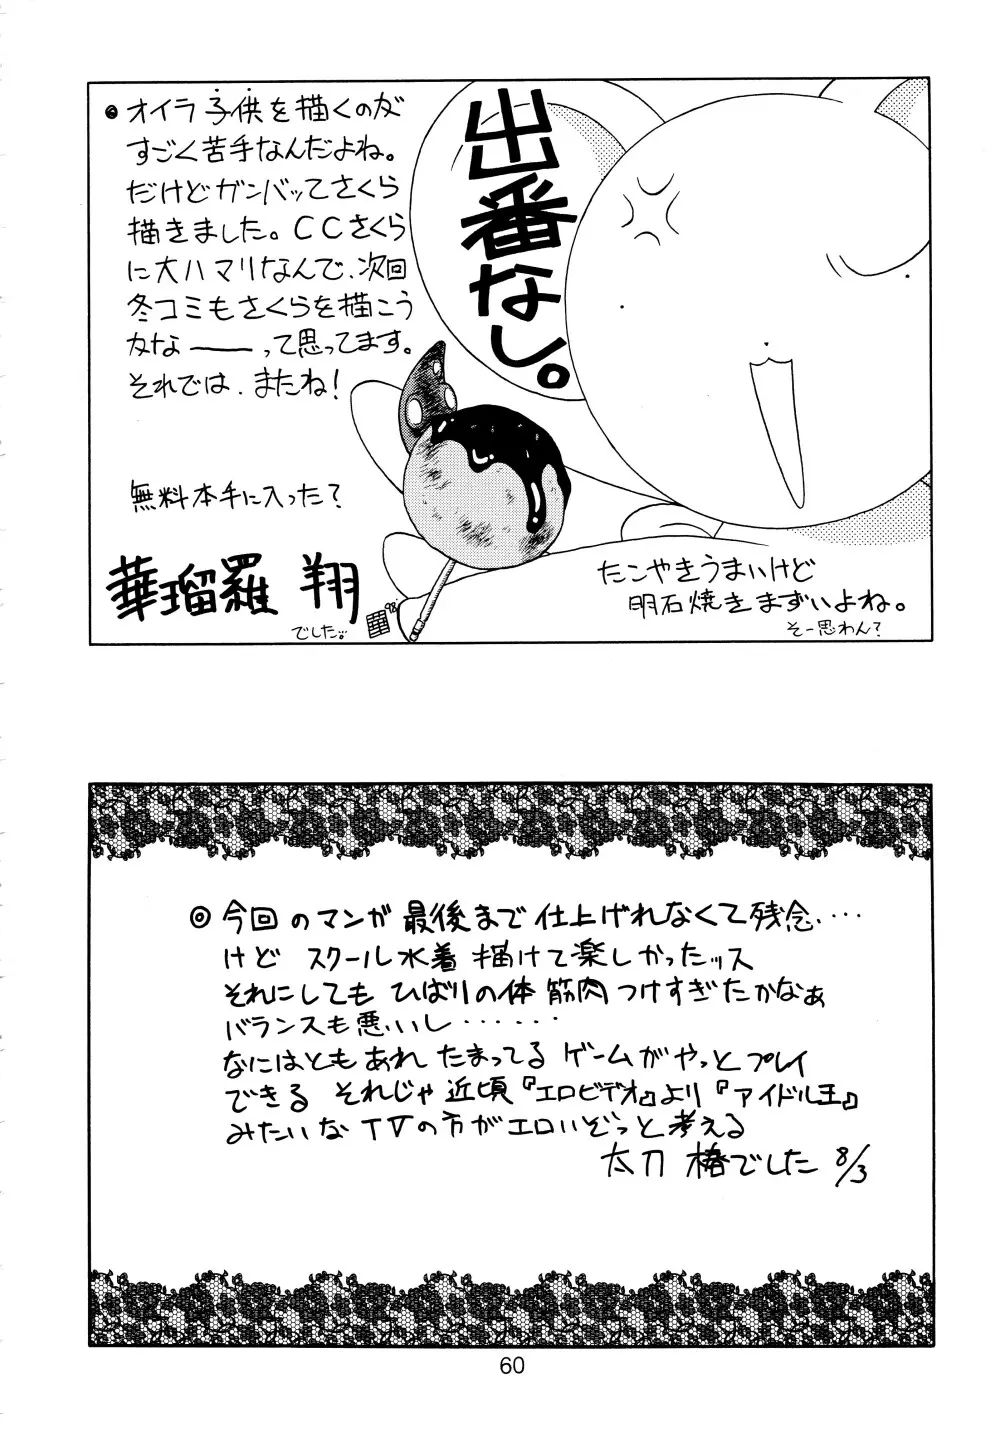 オイラ子供を描くのが
すごく苦手なんだよね。
だけどガンバッてさくら
描きました。CCさくら
に大ハマリなんで、次回
冬コミもさくらを描こう
かな——って思ってます。
それでは、またね！
無料本手に入った？
華瑠羅 翔
でした。
華
'98
出番なし。
たこやきうまいけど
明石焼きまずいよね。
そー思わん？
◎今回のマンガ最後まで仕上げれなくて残念‥‥
けど スクール水着 描けて楽しかったッス
それにしても ひばりの体 筋肉つけすぎたかなぁ
バランスも悪いし‥‥‥
なにはともあれ たまってる ゲームがやっと プレイ
できる それじゃ 近頃『エロビデオ』より『アイドル王』
みたいな TVの方がエロいぞっと考える
太刀 椿でした 8/3
60